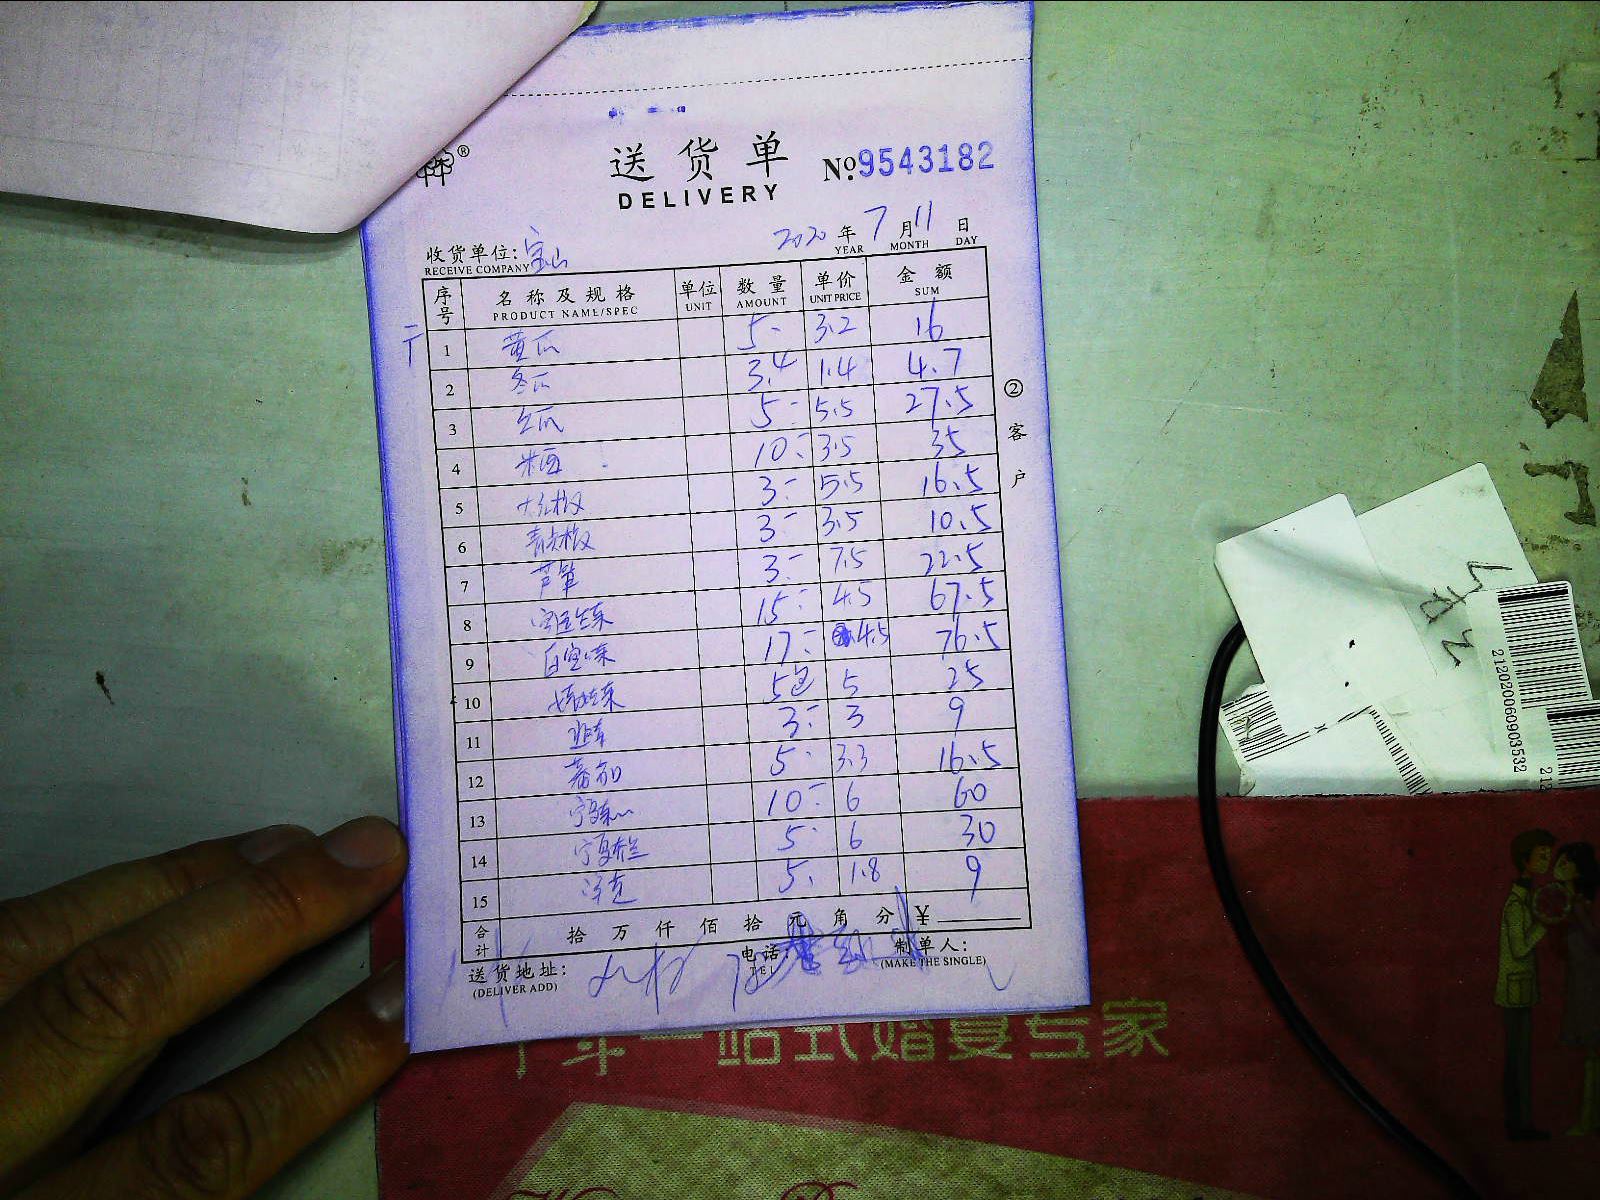 送货单
DELIVERY
№ 9543182
2020 年 7 月 11 日
YEAR MONTH DAY
收货单位: 宝山
RECEIVE COMPANY
序号 名称及规格 单位 数量 单价 金额
PRODUCT NAME/SPEC UNIT AMOUNT UNIT PRICE SUM
1 黄瓜 5 3.2 16
2 冬瓜 3.4 1.4 4.7
3 5 5.5 27.5
4 10 3.5 35
5 大红椒 3 5.5 16.5
6 青大椒 3 3.5 10.5
7 芦笋 3 7.5 22.5
8 15 4.5 67.5
9 17 4.5 76.5
10 5包 5 25
11 3 3 9
12 5 3.3 16.5
13 10 6 60
14 5 6 30
15 5 1.8 9
合计 拾 万 仟 佰 拾 元 角 分 ¥
送货地址: 电话: 制单人:
(DELIVER ADD) TEL (MAKE THE SINGLE)
② 客户
212020060903532
年一站式婚宴专家